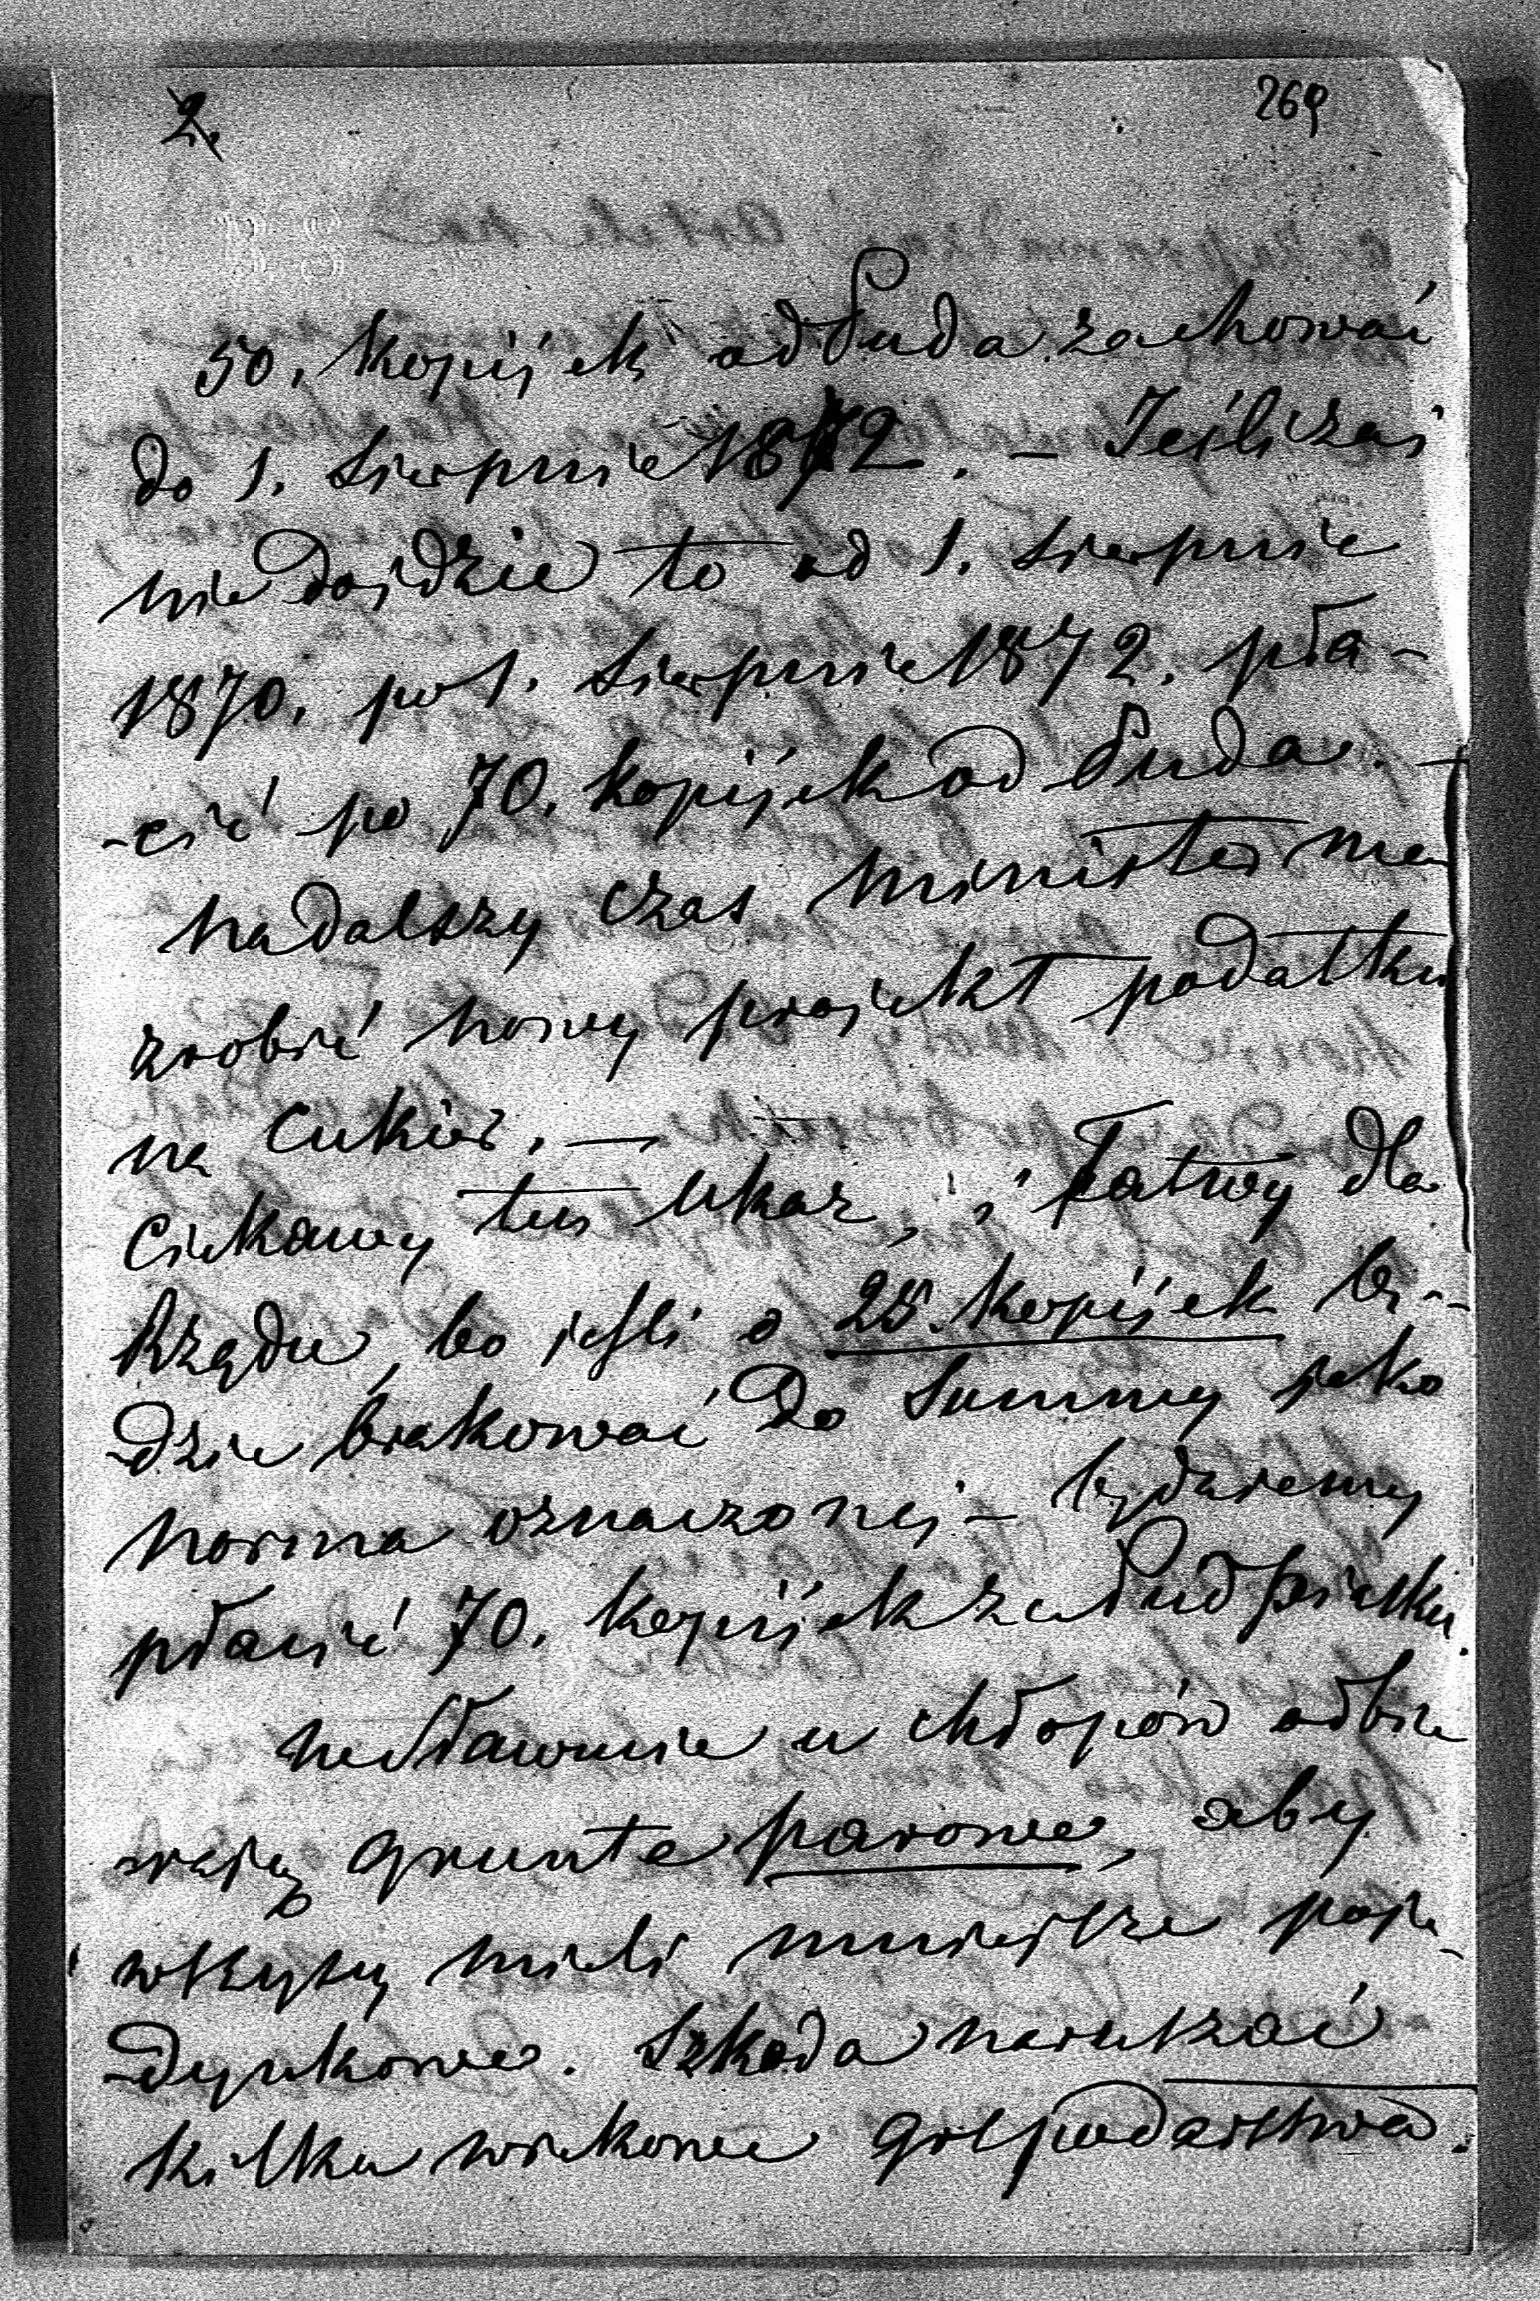 2.
269
50. kopijek od Puda zachować
do 1. Sierpnia 1872. – Jeśli zaś
nie dojdzie to od 1. Sierpnia
1870. po 1. Sierpnia 1872. pła-
-cić po 70. kopijek od Puda. –
na dalszy czas minister ma
zrobić nowy projekt podatku
na cukier. –
Ciekawy ten Ukaz, i łatwy dla
Rządu, bo jeśli o 25. kopijek bę-
-dzie brakować do Summy jako
norma oznaczonej – będziemy
płacić 70. kopijek za Pud piasku.
niedławnie u chłopów odbie
rają grunta parowe, aby
wszyscy mieli mniejsze poje-
-dynkowe. Szkoda naruszać
kilka wiekowe gospodarstwa.